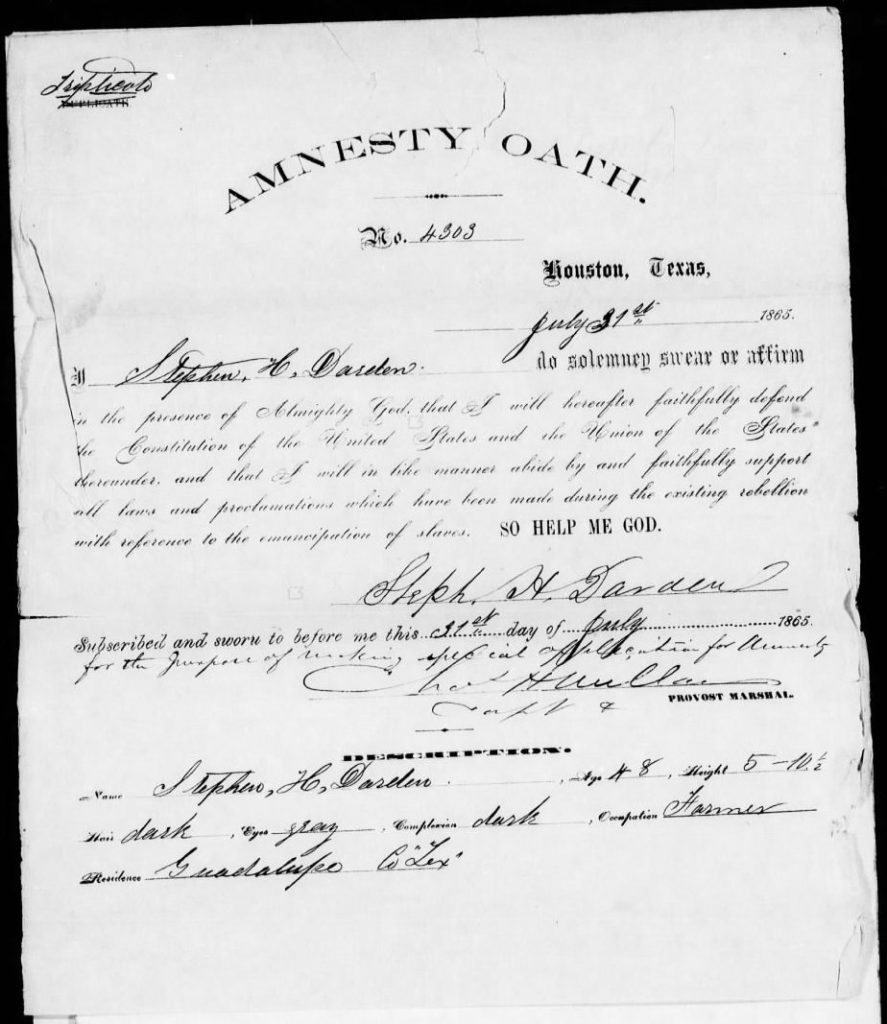 Triplicate
DUPLICATE
AMNESTY OATH.
No. 4303
Houston, Texas,
July 31st 1865.
I Stephen, H, Darden. do solemney swear or affirm
in the presence of Almighty God, that I will hereafter faithfully defend
the Constitution of the United States and the Union of the States
thereunder, and that I will in like manner abide by and faithfully support
all laws and proclamations which have been made during the existing rebellion
with reference to the emancipation of slaves. SO HELP ME GOD.
Steph. H. Darden
Subscribed and sworn to before me this 31st day of July 1865.
for the Purpose of making special application for Amnesty
PROVOST MARSHAL.
Capt &
DESCRIPTION.
Name Stephen, H, Darden. , Age 48 , Height 5-10 1/2
Hair dark , Eyes gray , Complexion dark , Occupation Farmer
Residence Guadalupe Co "Tex"